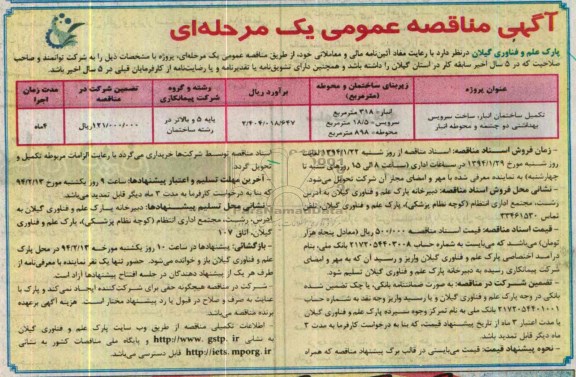 آگهی مناقصه عمومی یک مرحله‌ای
پارک علم و فناوری گیلان درنظر دارد با رعایت مفاد آئین‌نامه مالی و معاملاتی خود، از طریق مناقصه عمومی یک مرحله‌ای، پروژه با مشخصات ذیل را به شرکت توانمند و صاحب
صلاحیت که در ۵ سال اخیر سابقه کار در استان گیلان را داشته باشد و همچنین دارای تشویق‌نامه یا تقدیرنامه و یا رضایت‌نامه از کارفرمایان قبلی در ۵ سال اخیر باشد.
عنوان پروژه
زیربنای ساختمان و محوطه (مترمربع)
برآورد ریال
رشته و گروه شرکت پیمانکاری
تضمین شرکت در مناقصه
مدت زمان اجرا
تکمیل ساختمان انبار، ساخت سرویس بهداشتی دو چشمه و محوطه انبار
انبار= ۳۱۸ مترمربع
سرویس= ۱۸/۵ مترمربع
محوطه= ۸۹۸ مترمربع
۲/۴۰۴/۰۱۸/۶۴۷
پایه ۵ و بالاتر در رشته ساختمان
۱۲۱/۰۰۰/۰۰۰ریال
۴ماه
- زمان فروش اسناد مناقصه: اسناد مناقصه از روز شنبه ۱۳۹۴/۱/۲۲ لغایت
روز شنبه مورخ ۱۳۹۴/۱/۲۹ در ساعات اداری (ساعت ۸ الی ۱۵ روزهای شنبه تا
چهارشنبه) به نماینده معرفی شده با مهر و امضای مجاز آن شرکت تحویل می‌گردد.
- نشانی محل فروش اسناد مناقصه: دبیرخانه پارک علم و فناوری گیلان به آدرس
رشت، مجتمع اداری انتظام (کوچه نظام پزشکی)، پارک علم و فناوری گیلان، تلفن
تماس ۳۳۴۶۱۵۳۰
- قیمت اسناد مناقصه: قیمت اسناد مناقصه ۵۰۰/۰۰۰ ریال (معادل پنجاه هزار
تومان) می‌باشد که می‌بایست به شماره حساب ۲۱۷۲۰۵۴۴۰۳۰۰۸ بانک ملی، بنام
درآمد اختصاصی پارک علم و فناوری گیلان واریز و رسید آن که به مهر و امضای
شرکت پیمانکاری رسیده به دبیرخانه پارک علم و فناوری گیلان تسلیم شود.
- تضمین شرکت در مناقصه: به صورت ضمانتنامه بانکی، یا چک تضمین شده
بانکی در وجه پارک علم و فناوری گیلان و یا رسید واریز وجه نقد به شماره حساب
۲۱۷۲۰۵۴۲۰۱۰۰۱ بانک ملی به نام تمرکز وجوه سپرده پارک علم و فناوری گیلان
با مدت اعتبار ۳ ماه از تاریخ پیشنهاد قیمت، که بنا به درخواست کارفرما به مدت ۳
ماه دیگر قابل تمدید باشد.
- نحوه پیشنهاد قیمت: قیمت می‌بایستی در قالب برگ پیشنهاد مناقصه که همراه
اسناد مناقصه توسط شرکت‌ها خریداری می‌گردد با رعایت الزامات مربوطه تکمیل و
تحویل گردد.
- آخرین مهلت تسلیم و اعتبار پیشنهادها: ساعت ۹ روز یکشنبه مورخ ۹۴/۲/۱۳
که بنا به درخواست کارفرما به مدت ۳ ماه دیگر قابل تمدید می‌باشد.
- نشانی محل تسلیم پیشنهادها: دبیرخانه پارک علم و فناوری گیلان به
آدرس: رشت، مجتمع اداری انتظام (کوچه نظام پزشکی)، پارک علم و فناوری
گیلان، اتاق ۱۰۷
- بازگشائی: پیشنهادها در ساعت ۱۰ روز یکشنبه مورخه ۹۴/۲/۱۳ در محل پارک
علم و فناوری گیلان باز و خوانده می‌شود. حضور تنها یک نفر نماینده با معرفی‌نامه از
طرف هر یک از پیشنهاد دهندگان در جلسه افتتاح پیشنهادها آزاد است.
- شرکت در مناقصه هیچگونه حقی برای شرکت‌کننده ایجاد نمی‌کند و پارک با
عنایت به صرف و صلاح در قبول یا رد پیشنهاد مختار است. هزینه آگهی برعهده
برنده مناقصه می‌باشد.
اطلاعات تکمیلی مناقصه از طریق وب سایت پارک علم و فناوری گیلان
به نشانی http://www.gstp.ir و پایگاه ملی مناقصات کشور به نشانی
http://iets.mporg.ir قابل دسترسی می‌باشد.